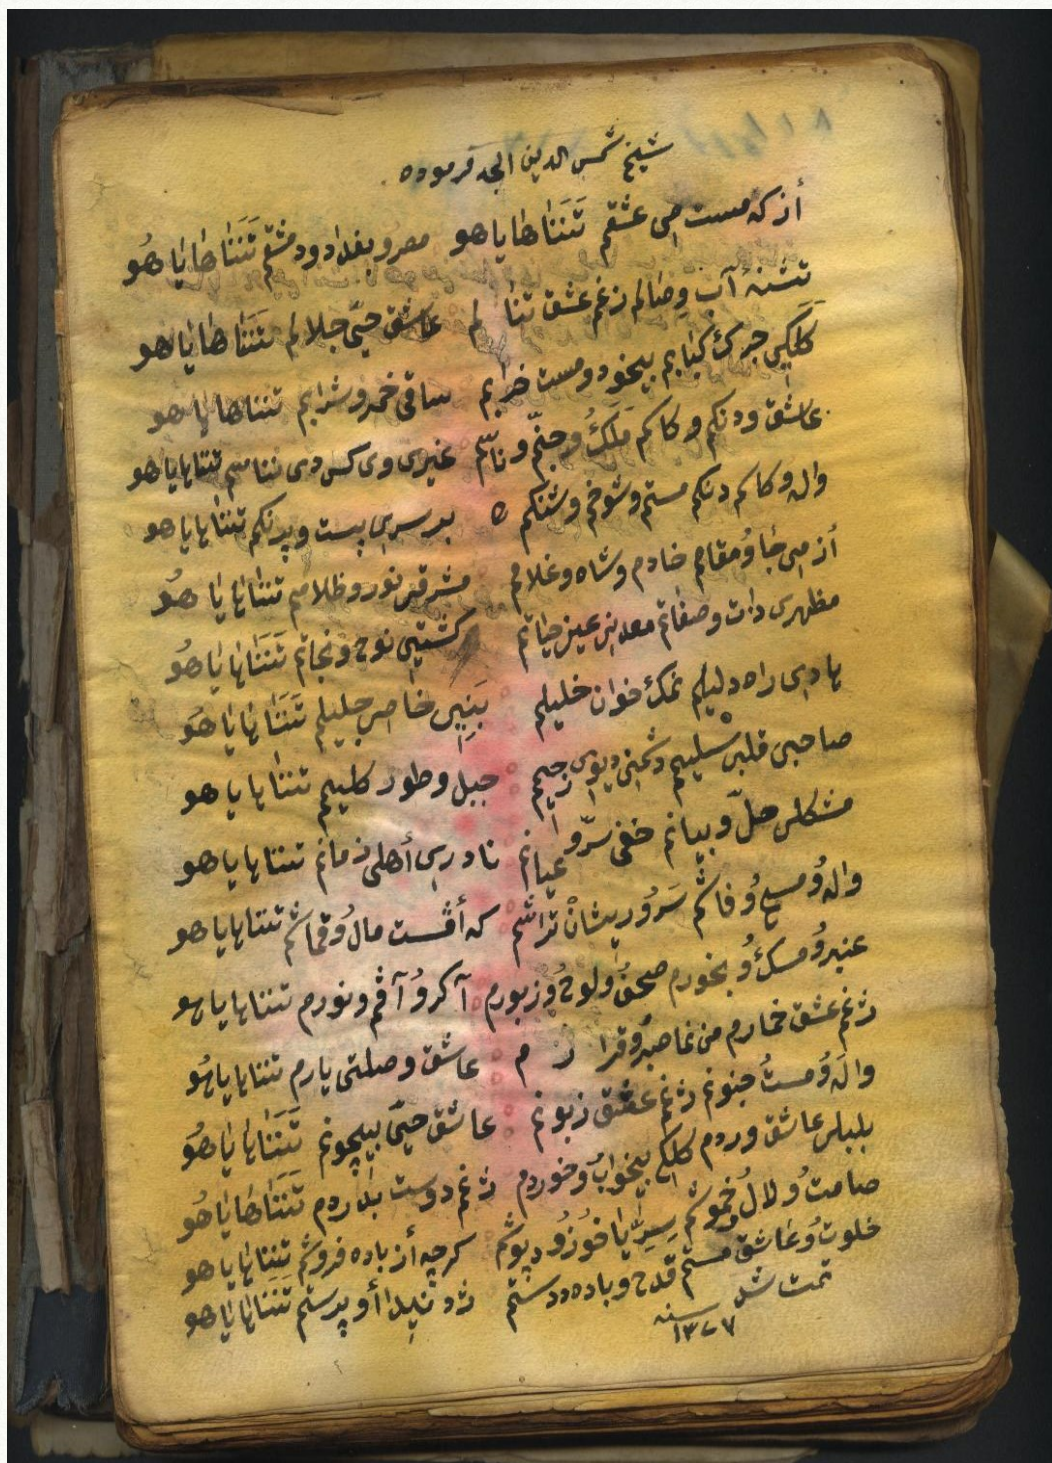 شیخ شمس الدین فرموده
أز که مست می عشقم تَنَنٰا هایاهو مصر و بغداد و دمشقم تَنَنٰا هٰایٰا هُو
تشنهٔ آب وصٰالم ز غم عشق تنا لم عاشق حیّ جلالم تَنَنٰا هٰایٰا هو
کلکی جرک کبٰابم بیخود و مست خرابم ساقی خمر و شرابم تننا هایا هو
عاشق و دنکم و کاکم مَلَکُ و جنّم و ناسم غیری وی کس دی ننا سم تنناهایاهو
واله و کاکم دنکم مستم و شوخم و شنکم بر سری پست و پرنکم تننٰا هایاهو
أز می جٰا وُ مقامم خادم و شاه و غلامم مشرقی نور و ظلامم تننٰاهٰا یٰا هُو
مظهری ذات و صفٰاتم معدنی عین حیٰاتم کشتیی نوح و نجاتم تَنَنٰاهٰا یٰاهُو
هادی راه دلیلم نمک خوان خلیلم بَنِیِی خاصی جلیلم تَنَنٰا هٰایٰا هُو
صاحبی قلبی سلیمم دشمنی دیوی رجیمم جبل و طور کلیمم تننٰا هایا هو
مشکلی حلّ و بیانم خفی سرّ و عیانم نادری أهلی زمانم تننا هایاهو
واله وُ مست وُ فاشم سَرَوُ ریشانْ تراشم که أڤست مال وُ قماشم تنناهایاهو
عنبر وُ مسک وُ بخورم صحفُ ولوح وُ زبورم آکر وُ آڤم و نورم تنناهایاهو
ژ غم عشق خمارم من نما صبر وُ قرارم عاشق وصلتی یارم تنناهایاهُو
والَه وُ مستُ جنونم ژ غم عشق زبونم عاشق حیّ بیچونم تَنَنٰاهٰا یٰاهُو
بلبلی عاشق وردم کلکی بیخوابُ و خوردم ژ غم دوست بدردم تَنَنٰاهٰایٰاهُو
صامت وُ لالُ خموشم سِرِّیٰا خوُ زوُ دپوشم کرچه أز باده فروشم تَنَنٰاهٰایاهو
خلوت وُ عٰاشق مستم قدح و باده ددستم ژ دنیٰدا أو پرستم تَنَنٰاهٰایٰاهو
تمت
سنه ١٣٤٧